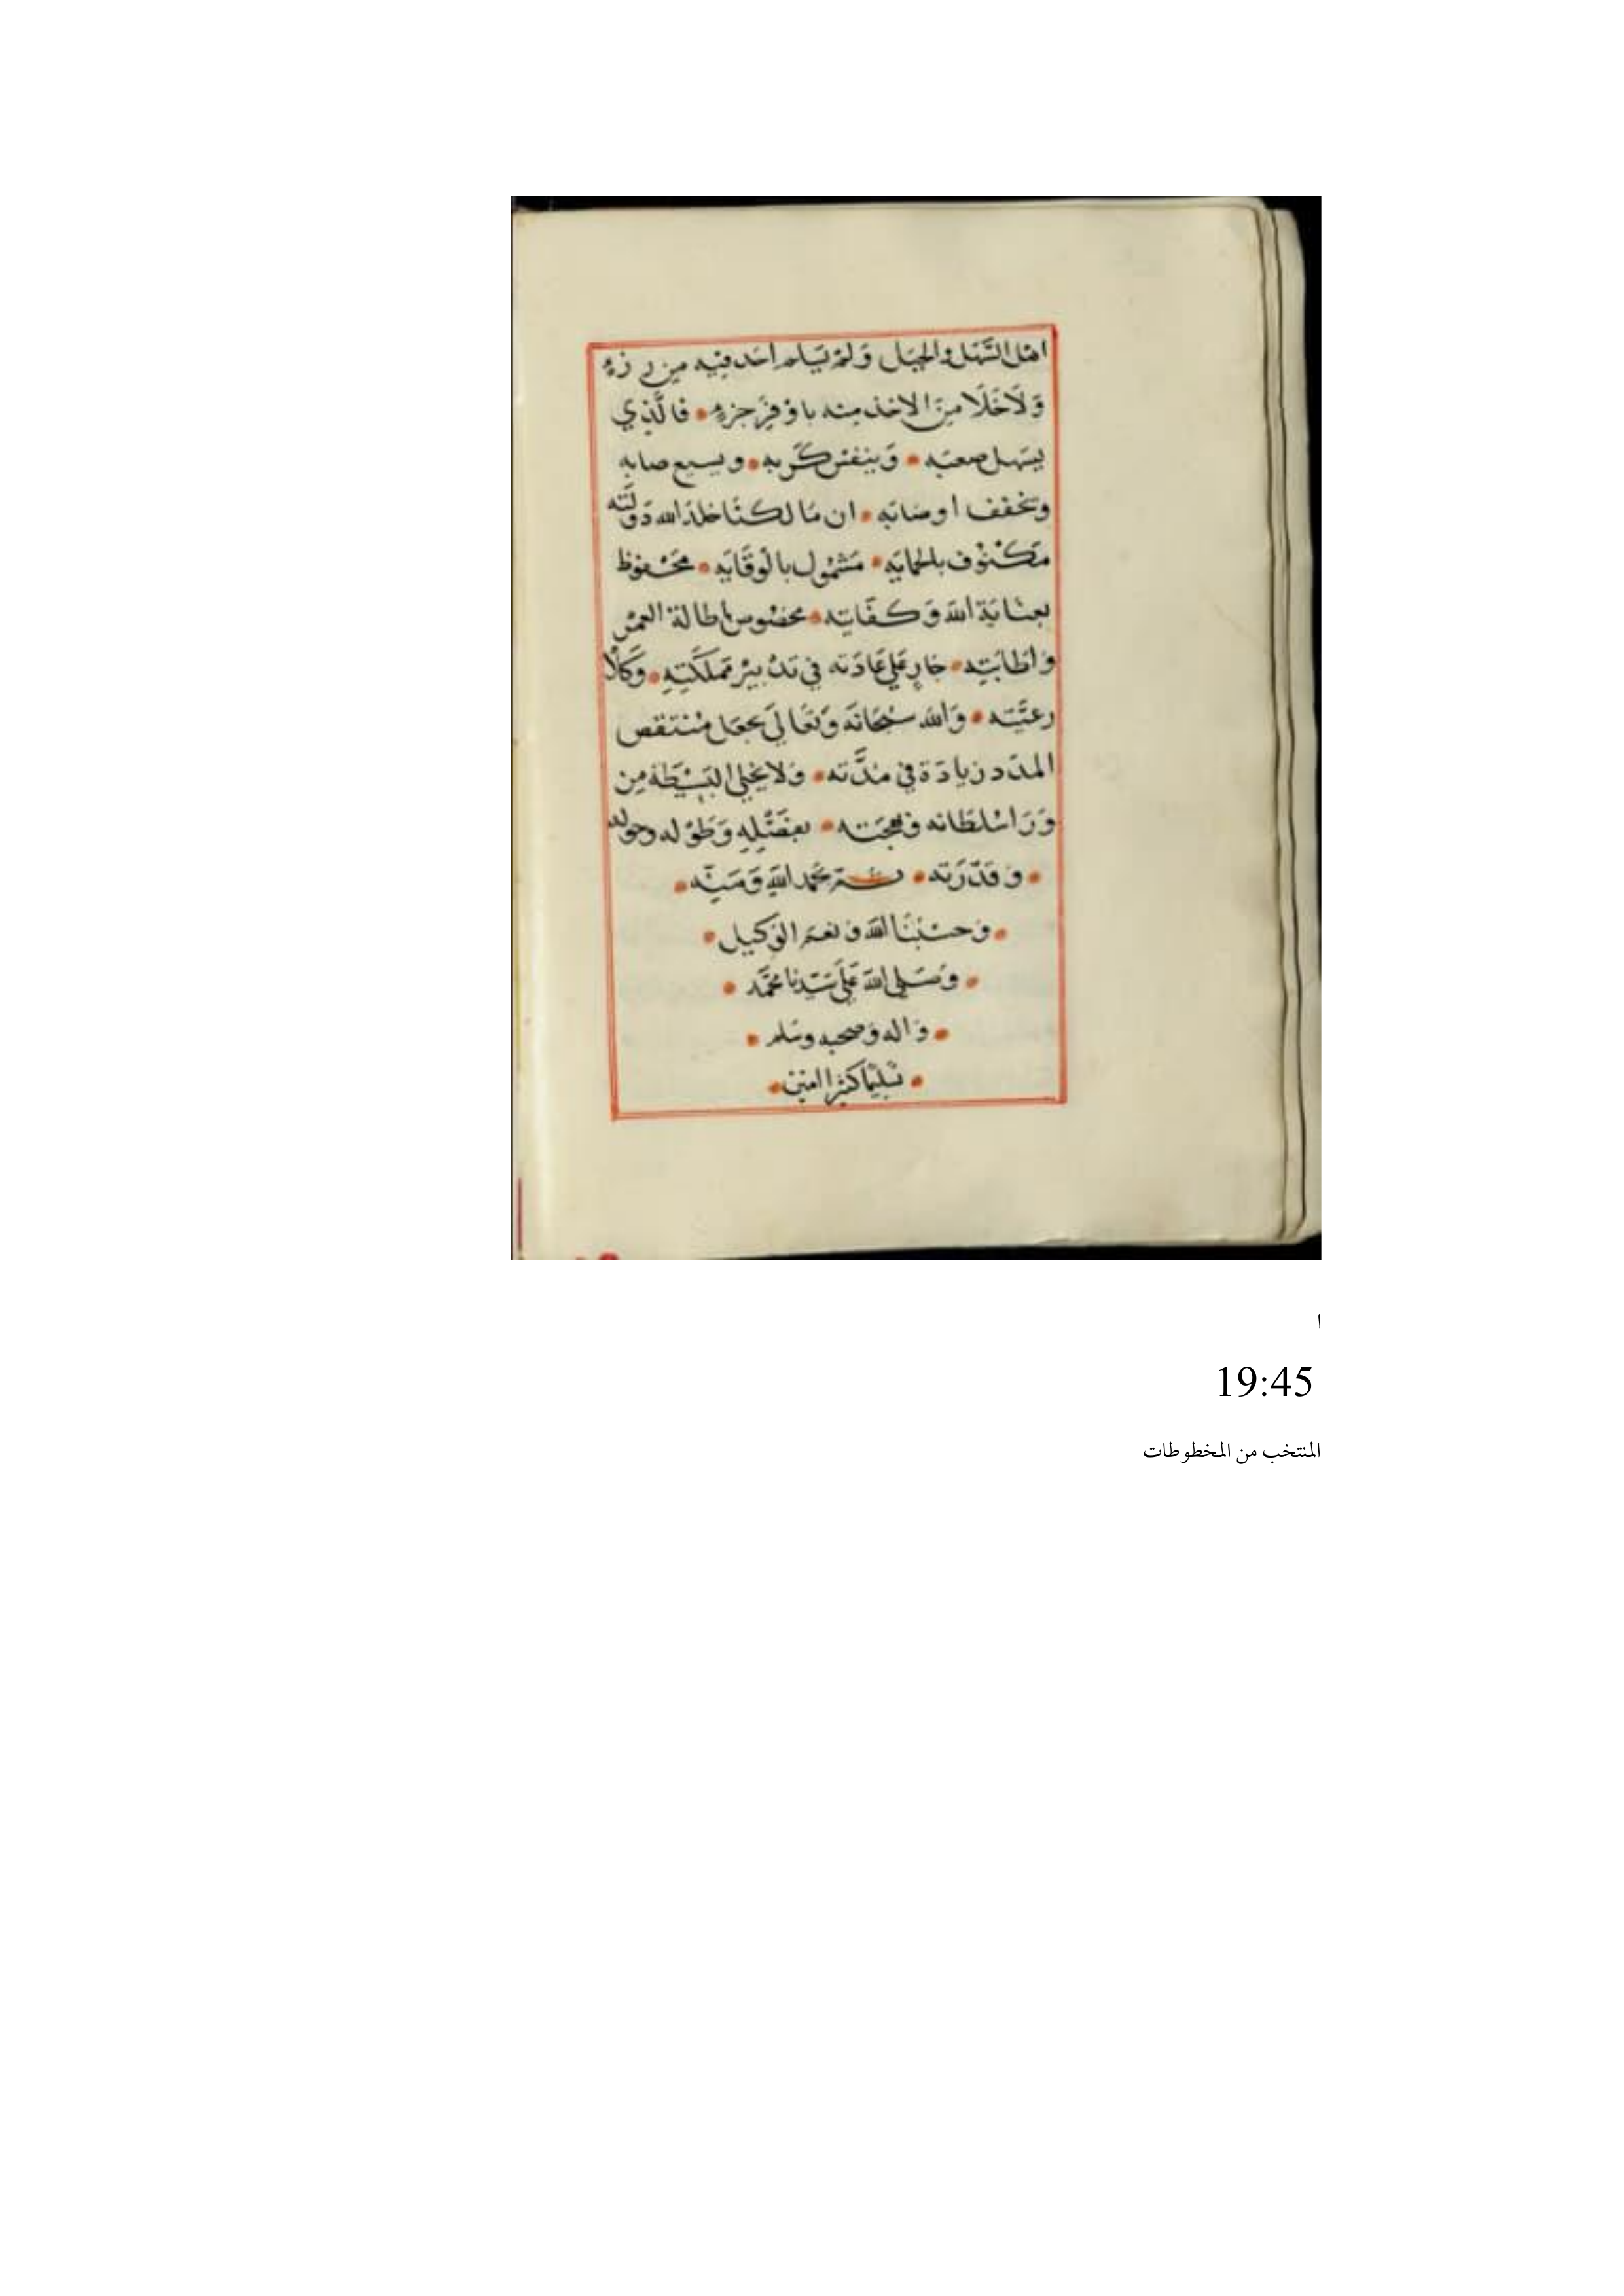 اهل السَّهَل والجبَل وَلمْ يَسَلم احَد فيه من رزءٍ
وَلَا خَلَا مِنَ الاخذ منه باوْفِرَ جزءٍ • فالَّذي
يسَهل صعبَه • وَينفسْ كَرَبه • ويسيع صابه
ويخفف اوصَابَه • ان مَالكنَا خلدَ الله دَولَتَه
مَكنوْف بالحمايَه • مَشموْل بالْوقَايَه • محَفوظ
بعنَايَة الله وَكفَايَته • مخصُوص باطالة العمْر
وَاطَابَتِه • جَارٍ عَلي عَادَته في تدْبيْر مَملكَتِهِ • وَكَلْا
رعيَّتِه • وَالله سبْحَانَه وَتعَالي يجعَل مْنتقص
المدَد زيادَة في مدَّته • وَلا يخلي البَسِيْطَة مِن
وَرَا سْلطَانه وَبهجَته • بفضْلِهِ وَطَوْله وحوله
• وَقدْرَته •    بحَمد الله وَمَنِّه •
• وَحسْبُنَا الله وَنعْمَ الوَكيل •
• وَصَلي الله عَلَى سَيّدنا محمَّد •
• وَاله وَصحبه وسَلم •
• تسْليْمًا كثيْرا امين •
ا
19:45
المنتخب من المخطوطات